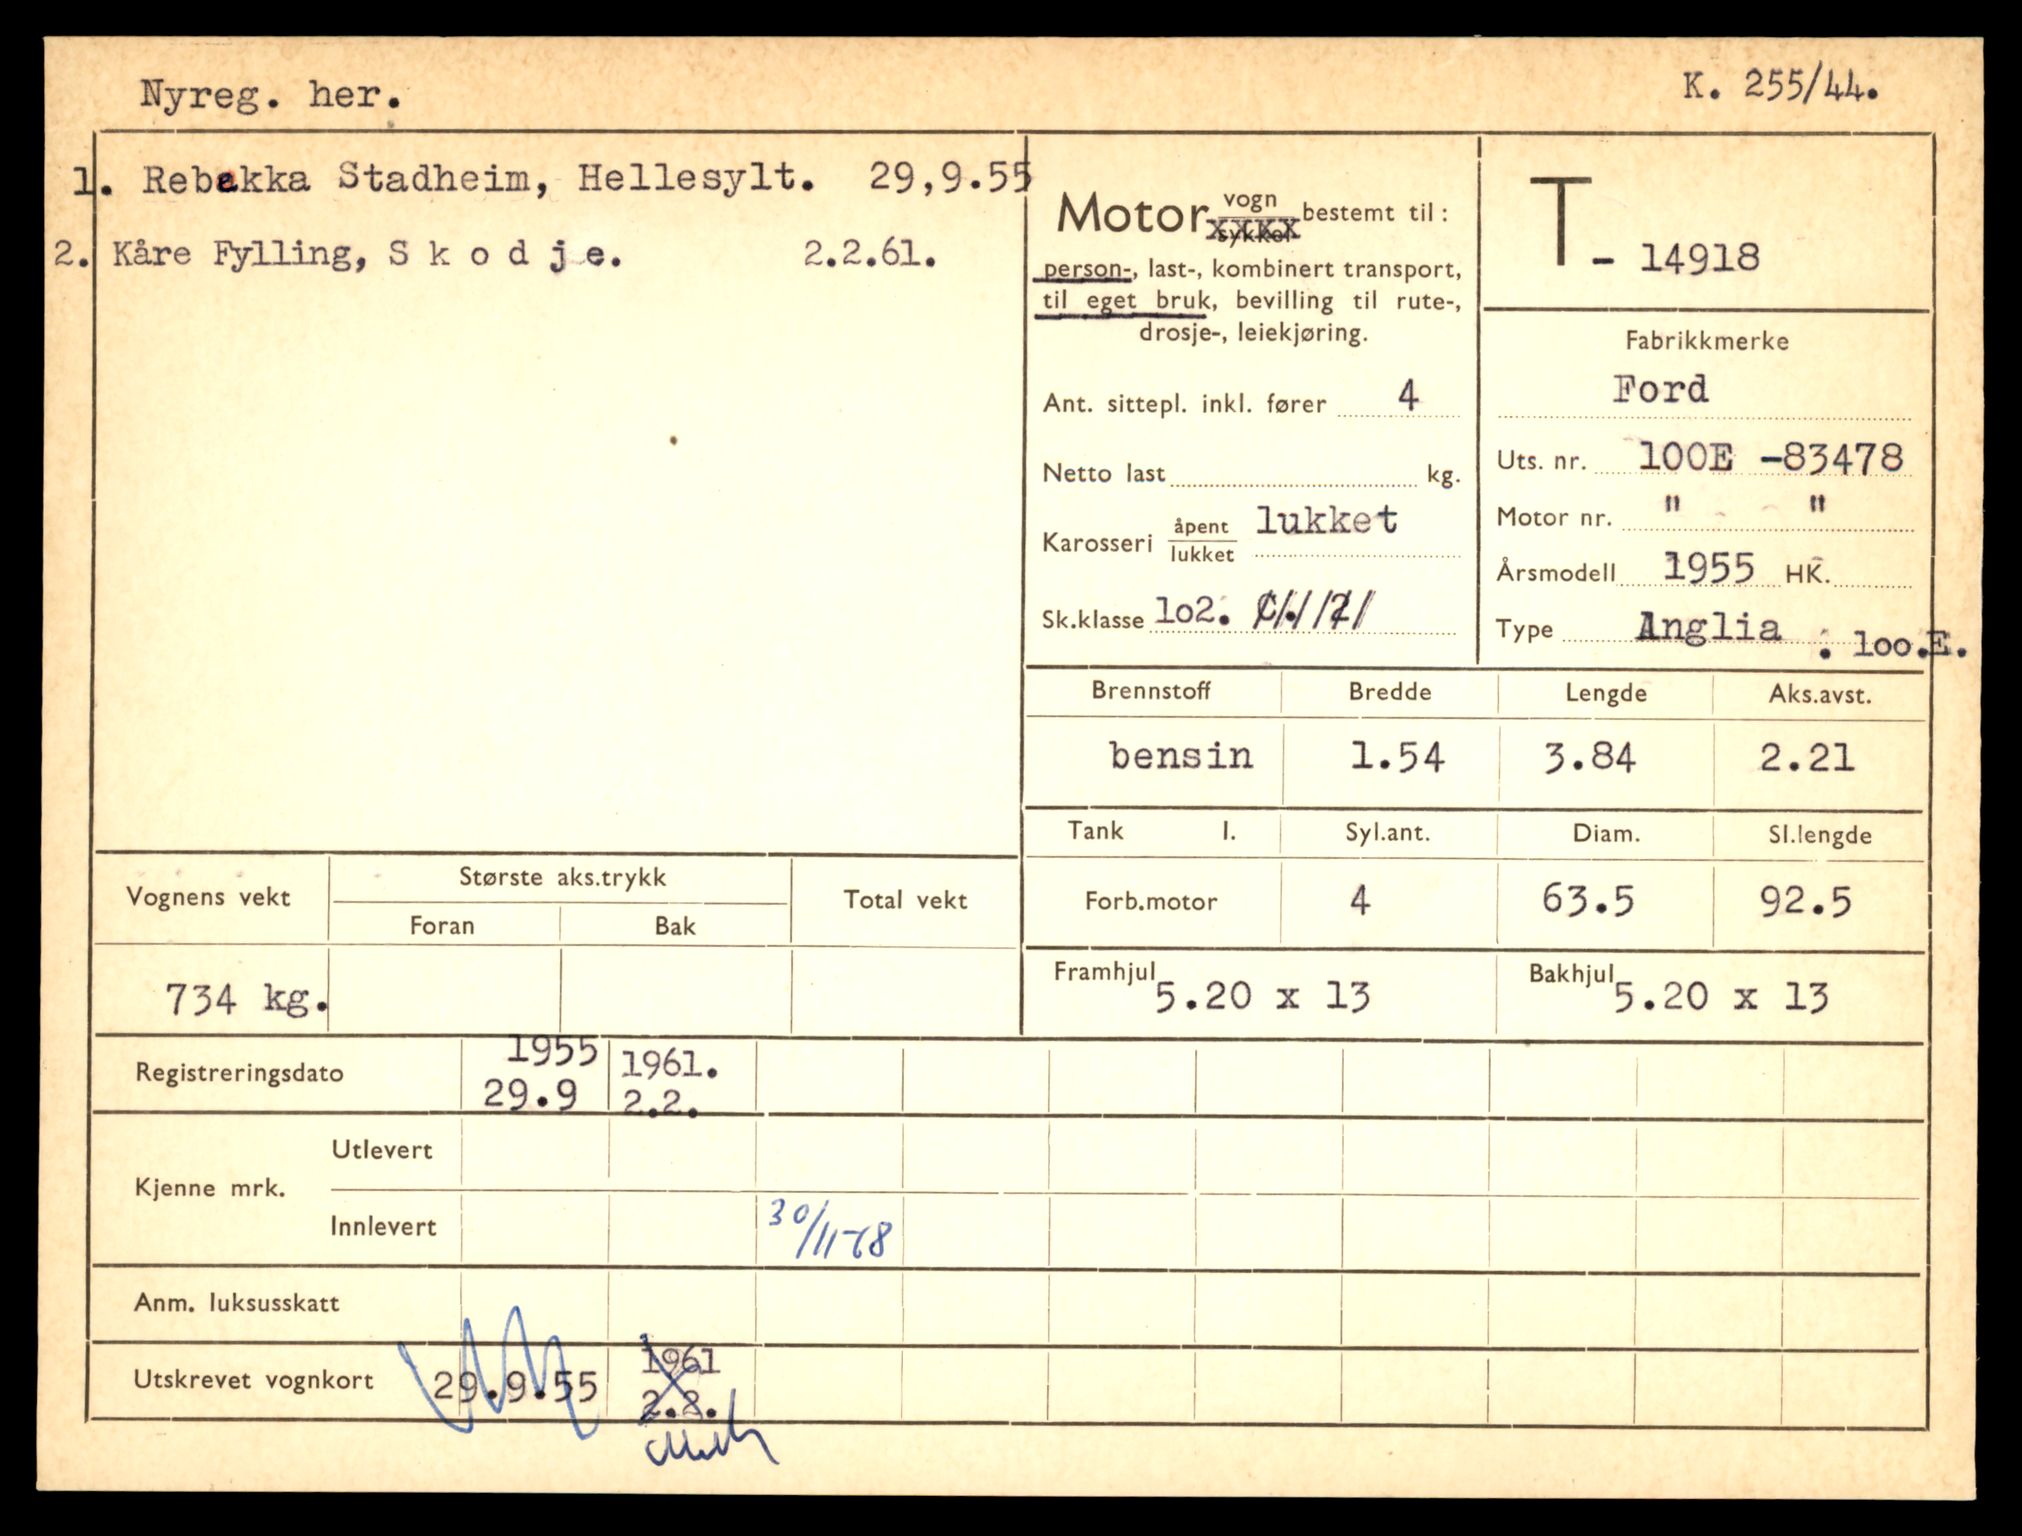 Nyreg. her.
K. 255/44.
1. Rebekka Stadheim, Hellesylt. 29,9.55
2. Kåre Fylling, S k o d j e. 2.2.61.
Motor vogn bestemt til:
xxxx sykkel
person-, last-, kombinert transport,
til eget bruk, bevilling til rute-,
drosje-, leiekjøring.
Ant. sittepl. inkl. fører 4
Netto last kg.
Karosseri åpent lukket
lukket
Sk.klasse 1o2.
T - 14918
Fabrikkmerke
Ford
Uts. nr. 100E -83478
Motor nr. " "
Årsmodell 1955 HK.
Type Anglia . 1oo.E.
Brennstoff Bredde Lengde Aks.avst.
bensin 1.54 3.84 2.21
Tank l. Syl.ant. Diam. Sl.lengde
Forb.motor 4 63.5 92.5
Framhjul 5.20 x 13 Bakhjul 5.20 x 13
Vognens vekt Største aks.trykk Total vekt
Foran Bak
734 kg.
Registreringsdato 1955 1961.
29.9 2.2.
Kjenne mrk. Utlevert
Innlevert 30/11-68
Anm. luksusskatt
Utskrevet vognkort 29.9.55 1961
2.2.